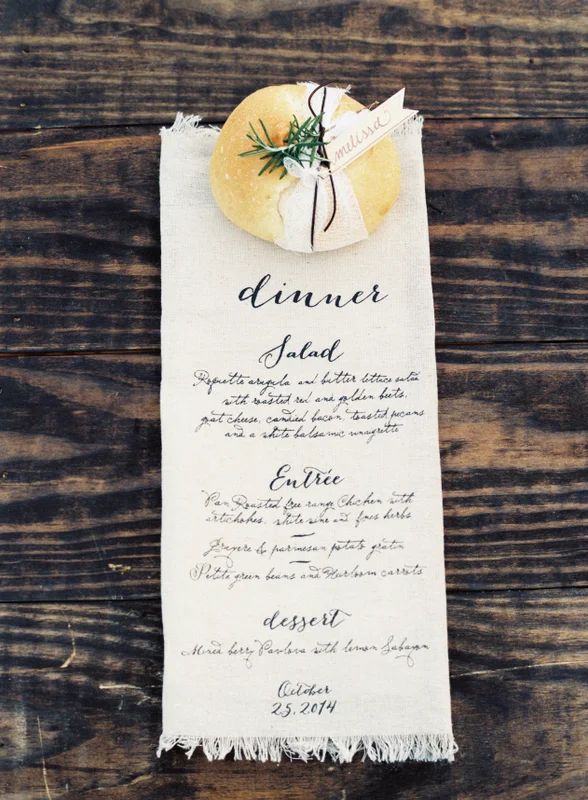 melissa
dinner
Salad
Roquette arugula and butter lettuce salad
with roasted red and golden beets,
goat cheese, candied bacon, toasted pecans
and a white balsamic vinaigrette
Entrée
Pan Roasted free range Chicken with
artichokes, white wine and fines herbs
Gruyere & parmesan potato gratin
Petite green beans and Heirloom carrots
dessert
Mixed berry Pavlova with lemon Sabayon
October
25, 2014